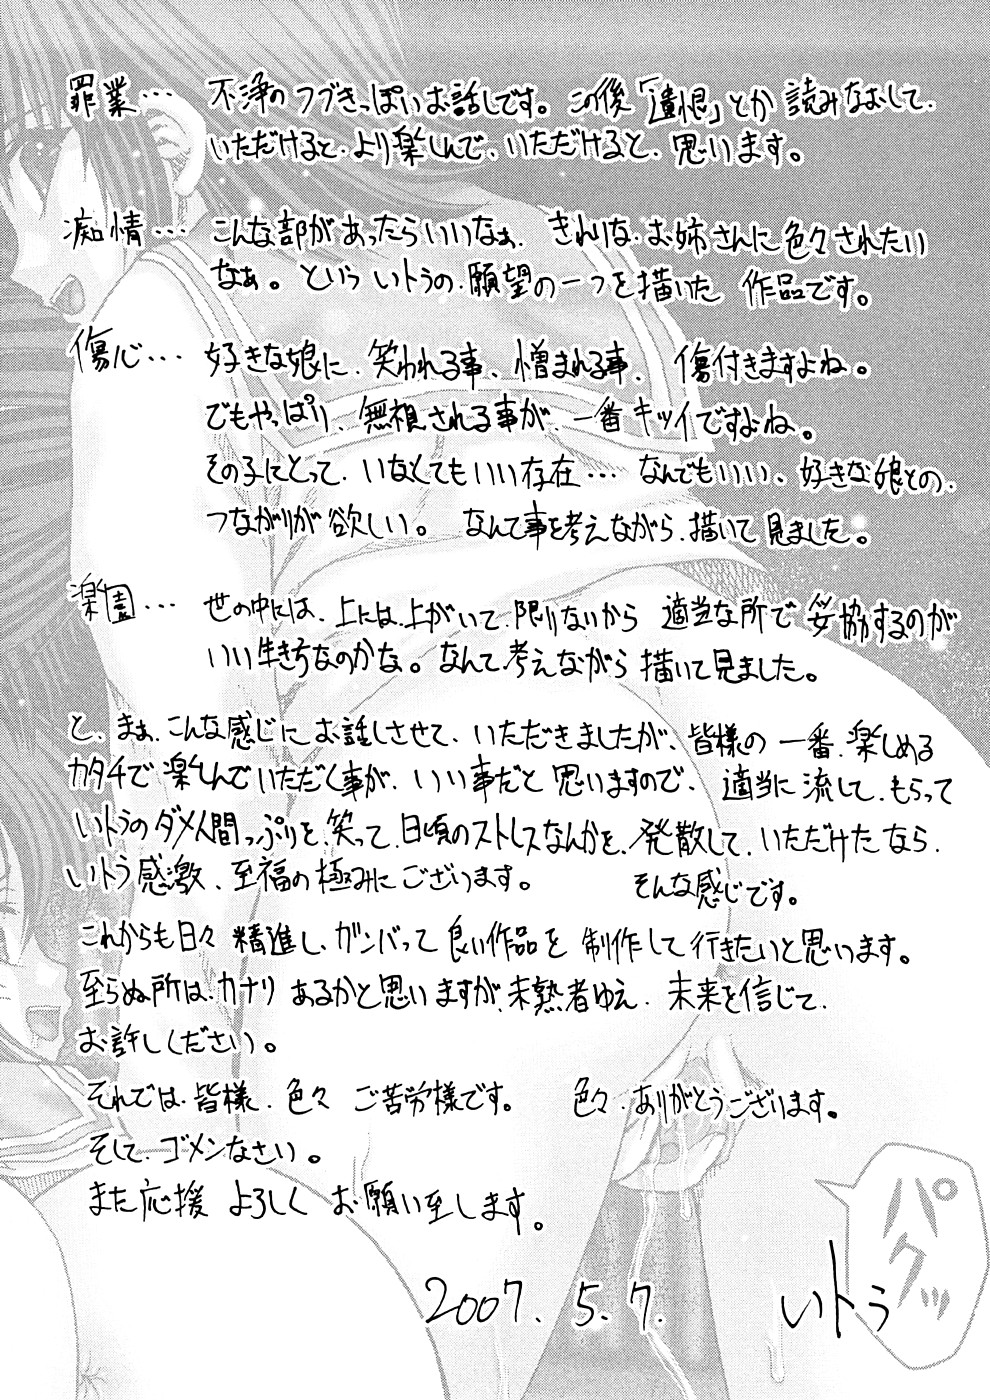 罪業… 不浄のつづきっぽいお話しです。この後「遺恨」とか読みなおして、
いただけると、より楽しんで、いただけると、思います。
痴情… こんな部があったらいいなぁ、きれいな、お姉さんに色々されたい
なぁ。という いトうの、願望の一つを描いた 作品です。
傷心… 好きな娘に、笑われる事、憎まれる事、傷付きますよね。
でもやっぱり、無視される事が、一番キツイですよね。
その子にとって、いなくてもいい存在… なんでもいい、好きな娘との、
つながりが欲しい。 なんて事を考えながら、描いて見ました。
楽園… 世の中には、上には、上がいて、限りないから 適当な所で 妥協するのが
いい生き方なのかな。なんて考えながら描いて見ました。
と、まぁ、こんな感じに お話しさせて、いただきましたが、皆様の 一番、楽しめる
カタチで楽しんでいただく事が、いい事だと思いますので、適当に流して、もらって
いトうのダメ人間っぷりを、笑って、日頃のストレスなんかを、発散して、いただけたなら、
いトう感激、至福の極みにございます。 そんな感じです。
これからも日々 精進し、ガンバって 良い作品を 制作して行きたいと思います。
至らぬ所は、カナリ あるかと思いますが、未熟者ゆえ、未来を信じて、
お許しください。
それでは、皆様、色々 ご苦労様です。 色々、ありがとうございます。
そして、ゴメンなさい。
また応援 よろしく お願い至します。
2007. 5. 7. いトう
パクッ